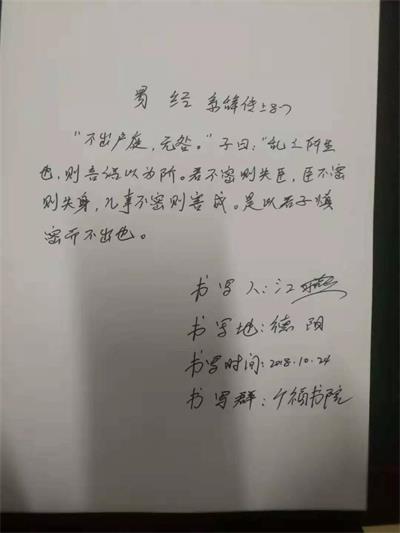 易经 系辞传上8-7
“不出户庭，无咎。”子曰：“乱之所生
也，则言语以为阶。君不密则失臣，臣不密
则失身，几事不密则害成。是以君子慎
密而不出也。
书写人：江燕
书写地：德阳
书写时间：2018.10.24
书写群：个领书院